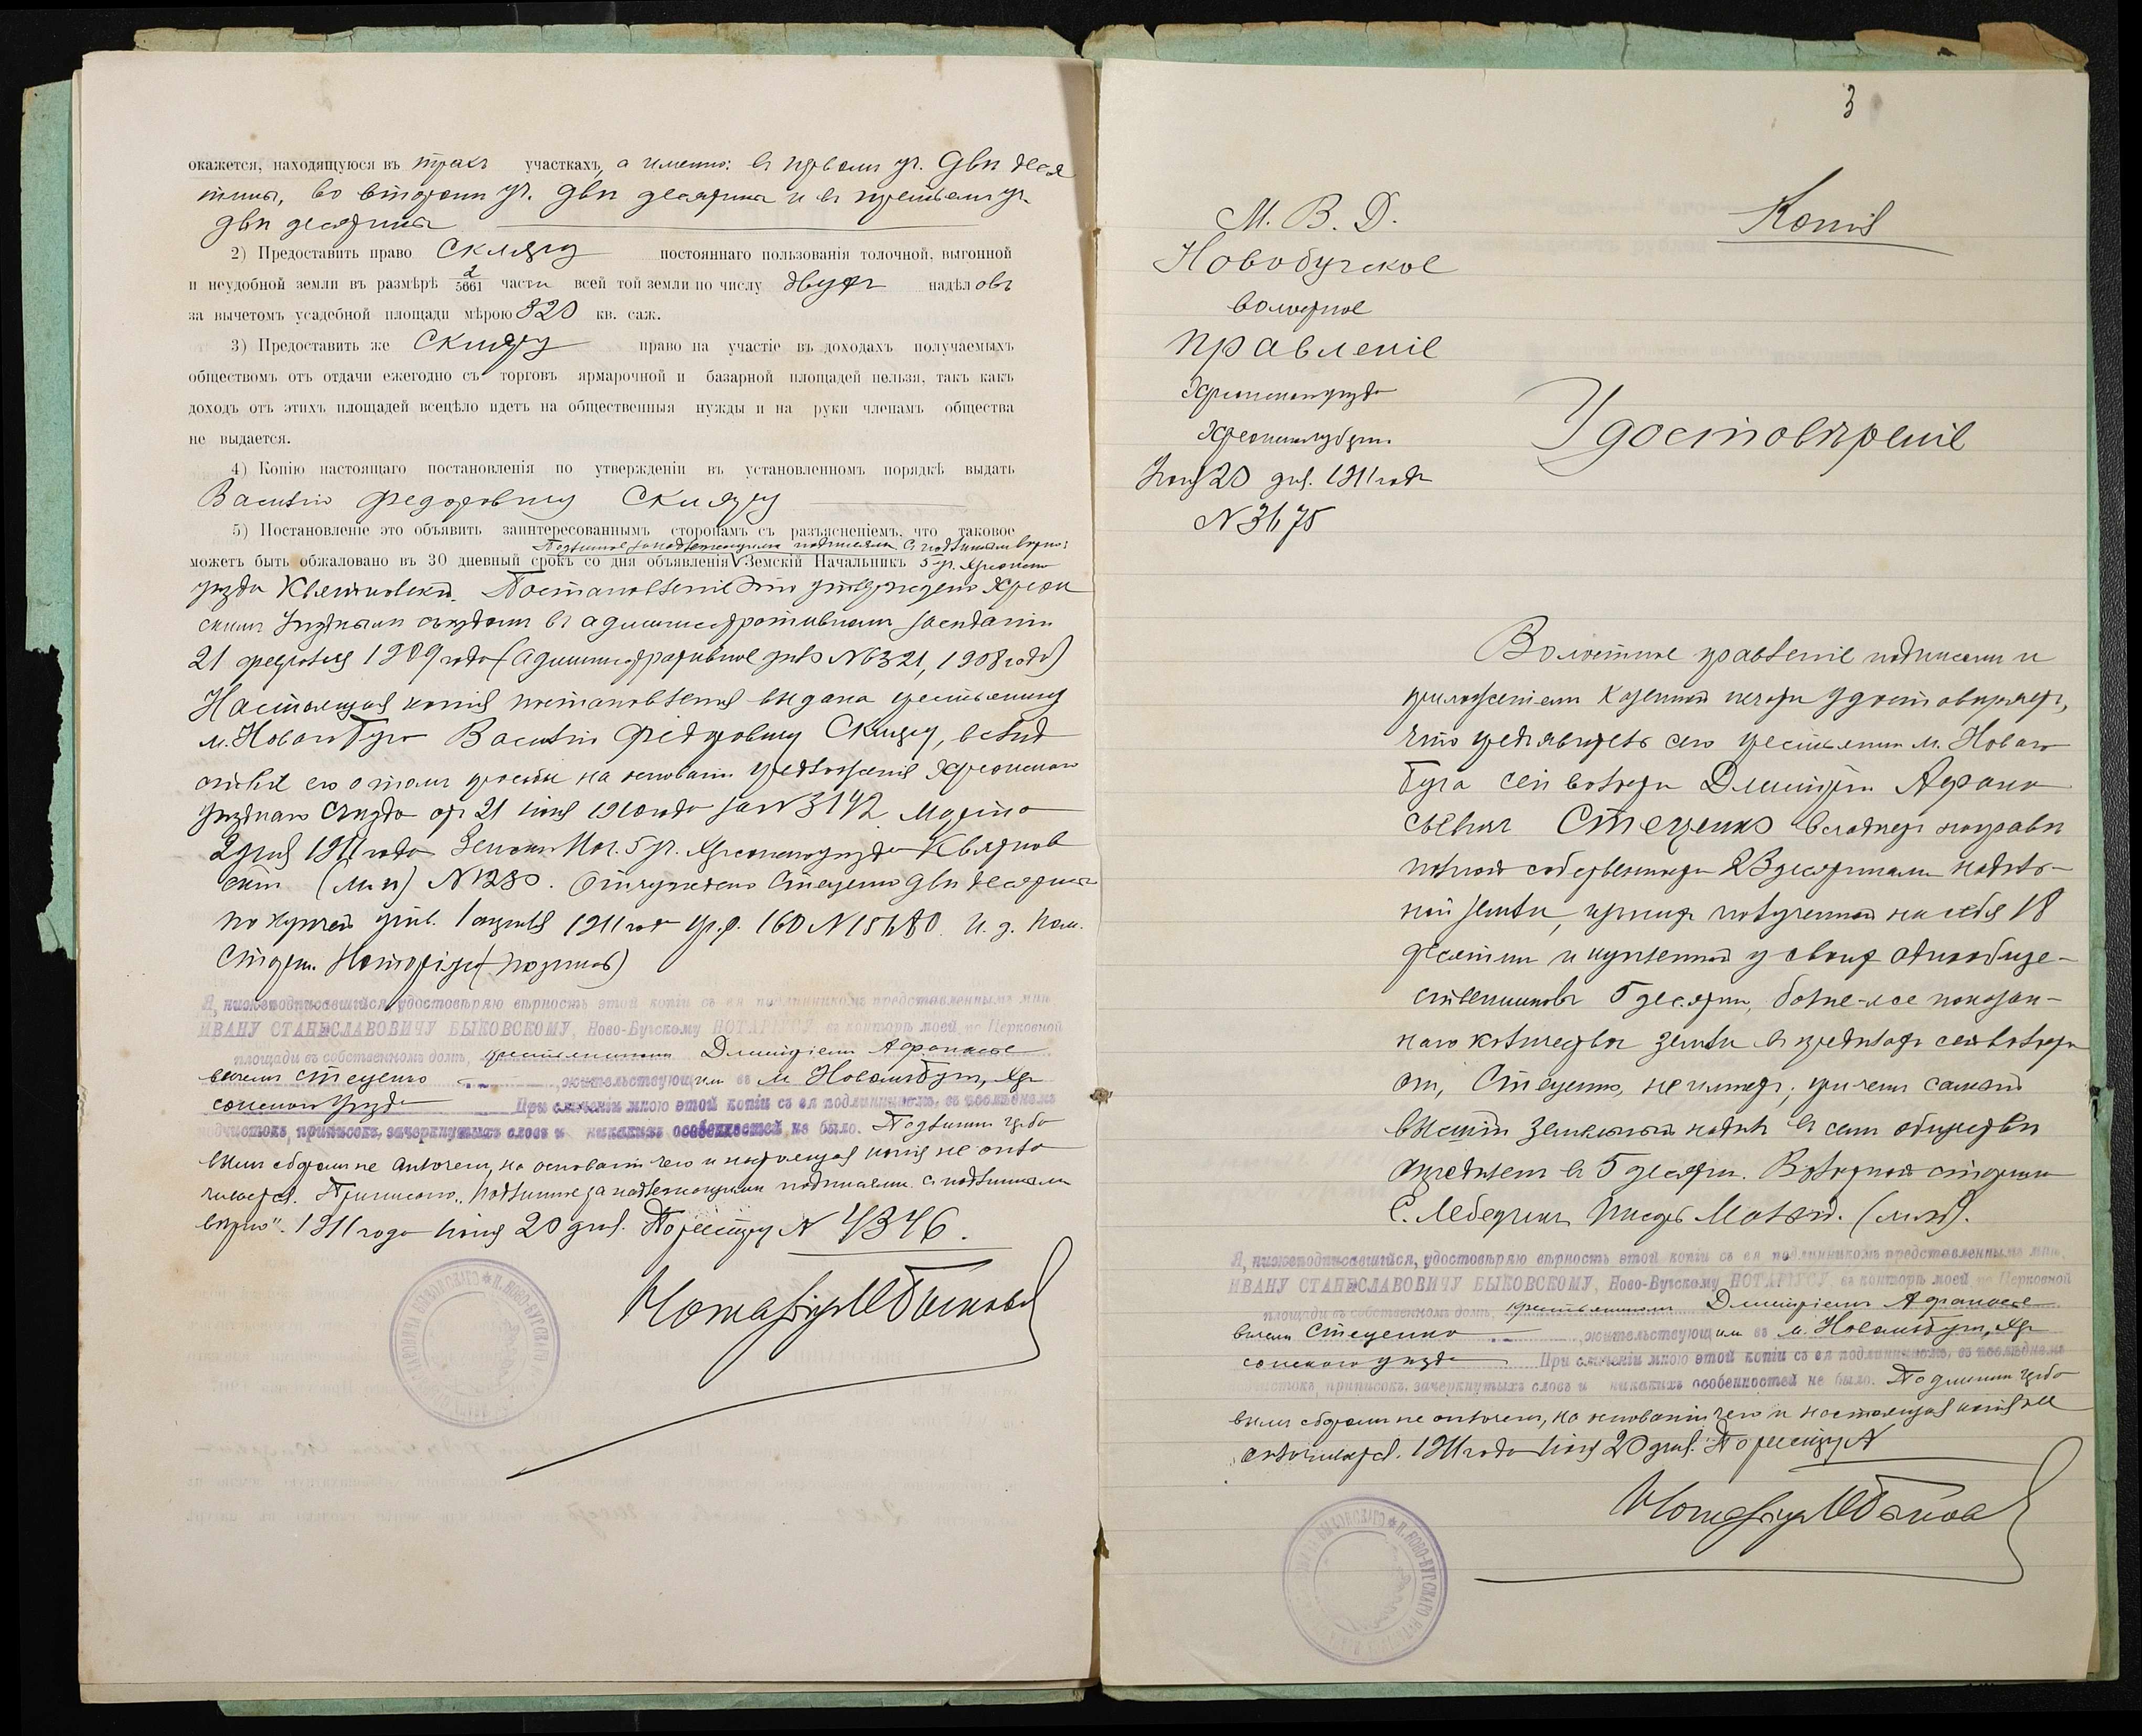 окажется, находящуюся въ трехъ участкахъ, а именно: въ первомъ уч. двѣ деся
тины, во второмъ уч. двѣ десятины и въ третьемъ уч.
двѣ десятины
2) Предоставить право Скляру постояннаго пользованія толочной, выгонной
и неудобной земли въ размѣрѣ 2/5661 части всей той земли по числу двухъ надѣловъ
за вычетомъ усадебной площади мѣрою 820 кв. саж.
3) Предоставить же Скляру право на участіе въ доходахъ получаемыхъ
обществомъ отъ отдачи ежегодно съ торговъ ярмарочной и базарной площадей нельзя, такъ какъ
доходъ отъ этихъ площадей всецѣло идетъ на общественныя нужды и на руки членамъ общества
не выдается.
4) Копію настоящаго постановленія по утвержденіи въ установленномъ порядкѣ выдать
Василію Федоровичу Скляру
5) Постановленіе это объявить заинтересованнымъ сторонамъ съ разъясненіемъ, что таковое
Подлинное за надлежащими подписями съ подлиннымъ вѣрно:
можетъ быть обжаловано въ 30 дневный срокъ со дня объявленія Земскій Начальникъ 5 уч. Херсонск
уѣзда Квятковскій. Постановленіе это утверждено Херсон
скимъ Уѣзднымъ съѣздомъ въ административномъ засѣданіи
21 февраля 1909 года (административное дѣло N 6321, 1908 года)
Настоящая копія постановленія выдана крестьянину
м. Новаго Буга Василію Федоровичу Скляру, вслѣд
ствіе его о томъ просьбы на основаніи предложенія Херсонскаго
уѣзднаго съѣзда отъ 21 іюня 1910 года за N 3142 Марта
2 дня 1911 года Земскій Нач. 5 уч. Херсонск. уѣзда Квятков
скій (м.п) N 1280. Отчуждено Стеценко двѣ десятины
по купчей утв. 1 апрѣля 1911 года кр.р. 160 N 15480. И. д. Пом.
Старш. Нотаріуса (подпись)
Я, нижеподписавшійся, удостовѣряю вѣрность этой копіи съ ея подлинникомъ представленнымъ мнѣ,
ИВАНУ СТАНИСЛАВОВИЧУ БЫКОВСКОМУ, Ново-Бугскому НОТАРІУСУ, въ конторѣ моей по Церковной
площади въ собственномъ домѣ, крестьяниномъ Дмитріемъ Афанасье
вичемъ Стеценко жительствующимъ въ м. Новомъ Бугѣ, Хер
сонскаго уѣзда При сличеніи мною этой копіи съ ея подлинникомъ, въ послѣднемъ
подчистокъ, приписокъ, зачеркнутыхъ словъ и никакихъ особенностей не было. Подлинникъ герб
вымъ сборомъ не оплоченъ, на основаніи чего и настоящая копія не опла
чивается. Приписано: "подлинное за надлежащими подписями съ подлиннымъ
вѣрно". 1911 года Іюня 20 дня. По реестру N 4346.
Нотаріусъ И Быковск
3
М. В. Д.
Новобугское
волостное
правленіе
Херсонскаго уѣзда
Херсонской губерн.
Іюня 20 дня 1911 года
N 3175
Копія
Удостовѣреніе
Волостное правленіе подписями и
приложеніемъ казенной печати удостовѣряетъ,
что предъявитель сего крестьянинъ м. Новаго
Буга сей волости Дмитрій Афана
сьевичъ Стеценко владѣетъ на правѣ
полной собственности 23 десятинами надѣль-
ной земли, изъ нихъ полученной на себя 18
десятинъ и купленной у своихъ однообще-
ственниковъ 5 десятин, более-же показан-
наго количества земли въ предѣлахъ сей волости
онъ, Стеценко, не имѣетъ; причемъ самый
высшій земельный надѣлъ въ семъ обществѣ
опредѣленъ въ 5 десятин. Волостной старшина
С. Лебедчикъ Писарь (м.п).
Я, нижеподписавшійся, удостовѣряю вѣрность этой копіи съ ея подлинникомъ представленнымъ мнѣ,
ИВАНУ СТАНИСЛАВОВИЧУ БЫКОВСКОМУ, Ново-Бугскому НОТАРІУСУ, въ конторѣ моей по Церковной
площади въ собственномъ домѣ, крестьяниномъ Дмитріемъ Афанасье
вичемъ Стеценко жительствующимъ въ м. Новомъ Бугѣ, Хер
сонскаго уѣзда При сличеніи мною этой копіи съ ея подлинникомъ, въ послѣднемъ
подчистокъ приписокъ, зачеркнутыхъ словъ и никакихъ особенностей не было. Подлинникъ гербо
вымъ сборомъ не оплоченъ, на основаніи чего и настоящая копія не
оплочивается. 1911 года Іюня 20 дня. По реестру N
Нотаріусъ И Быков